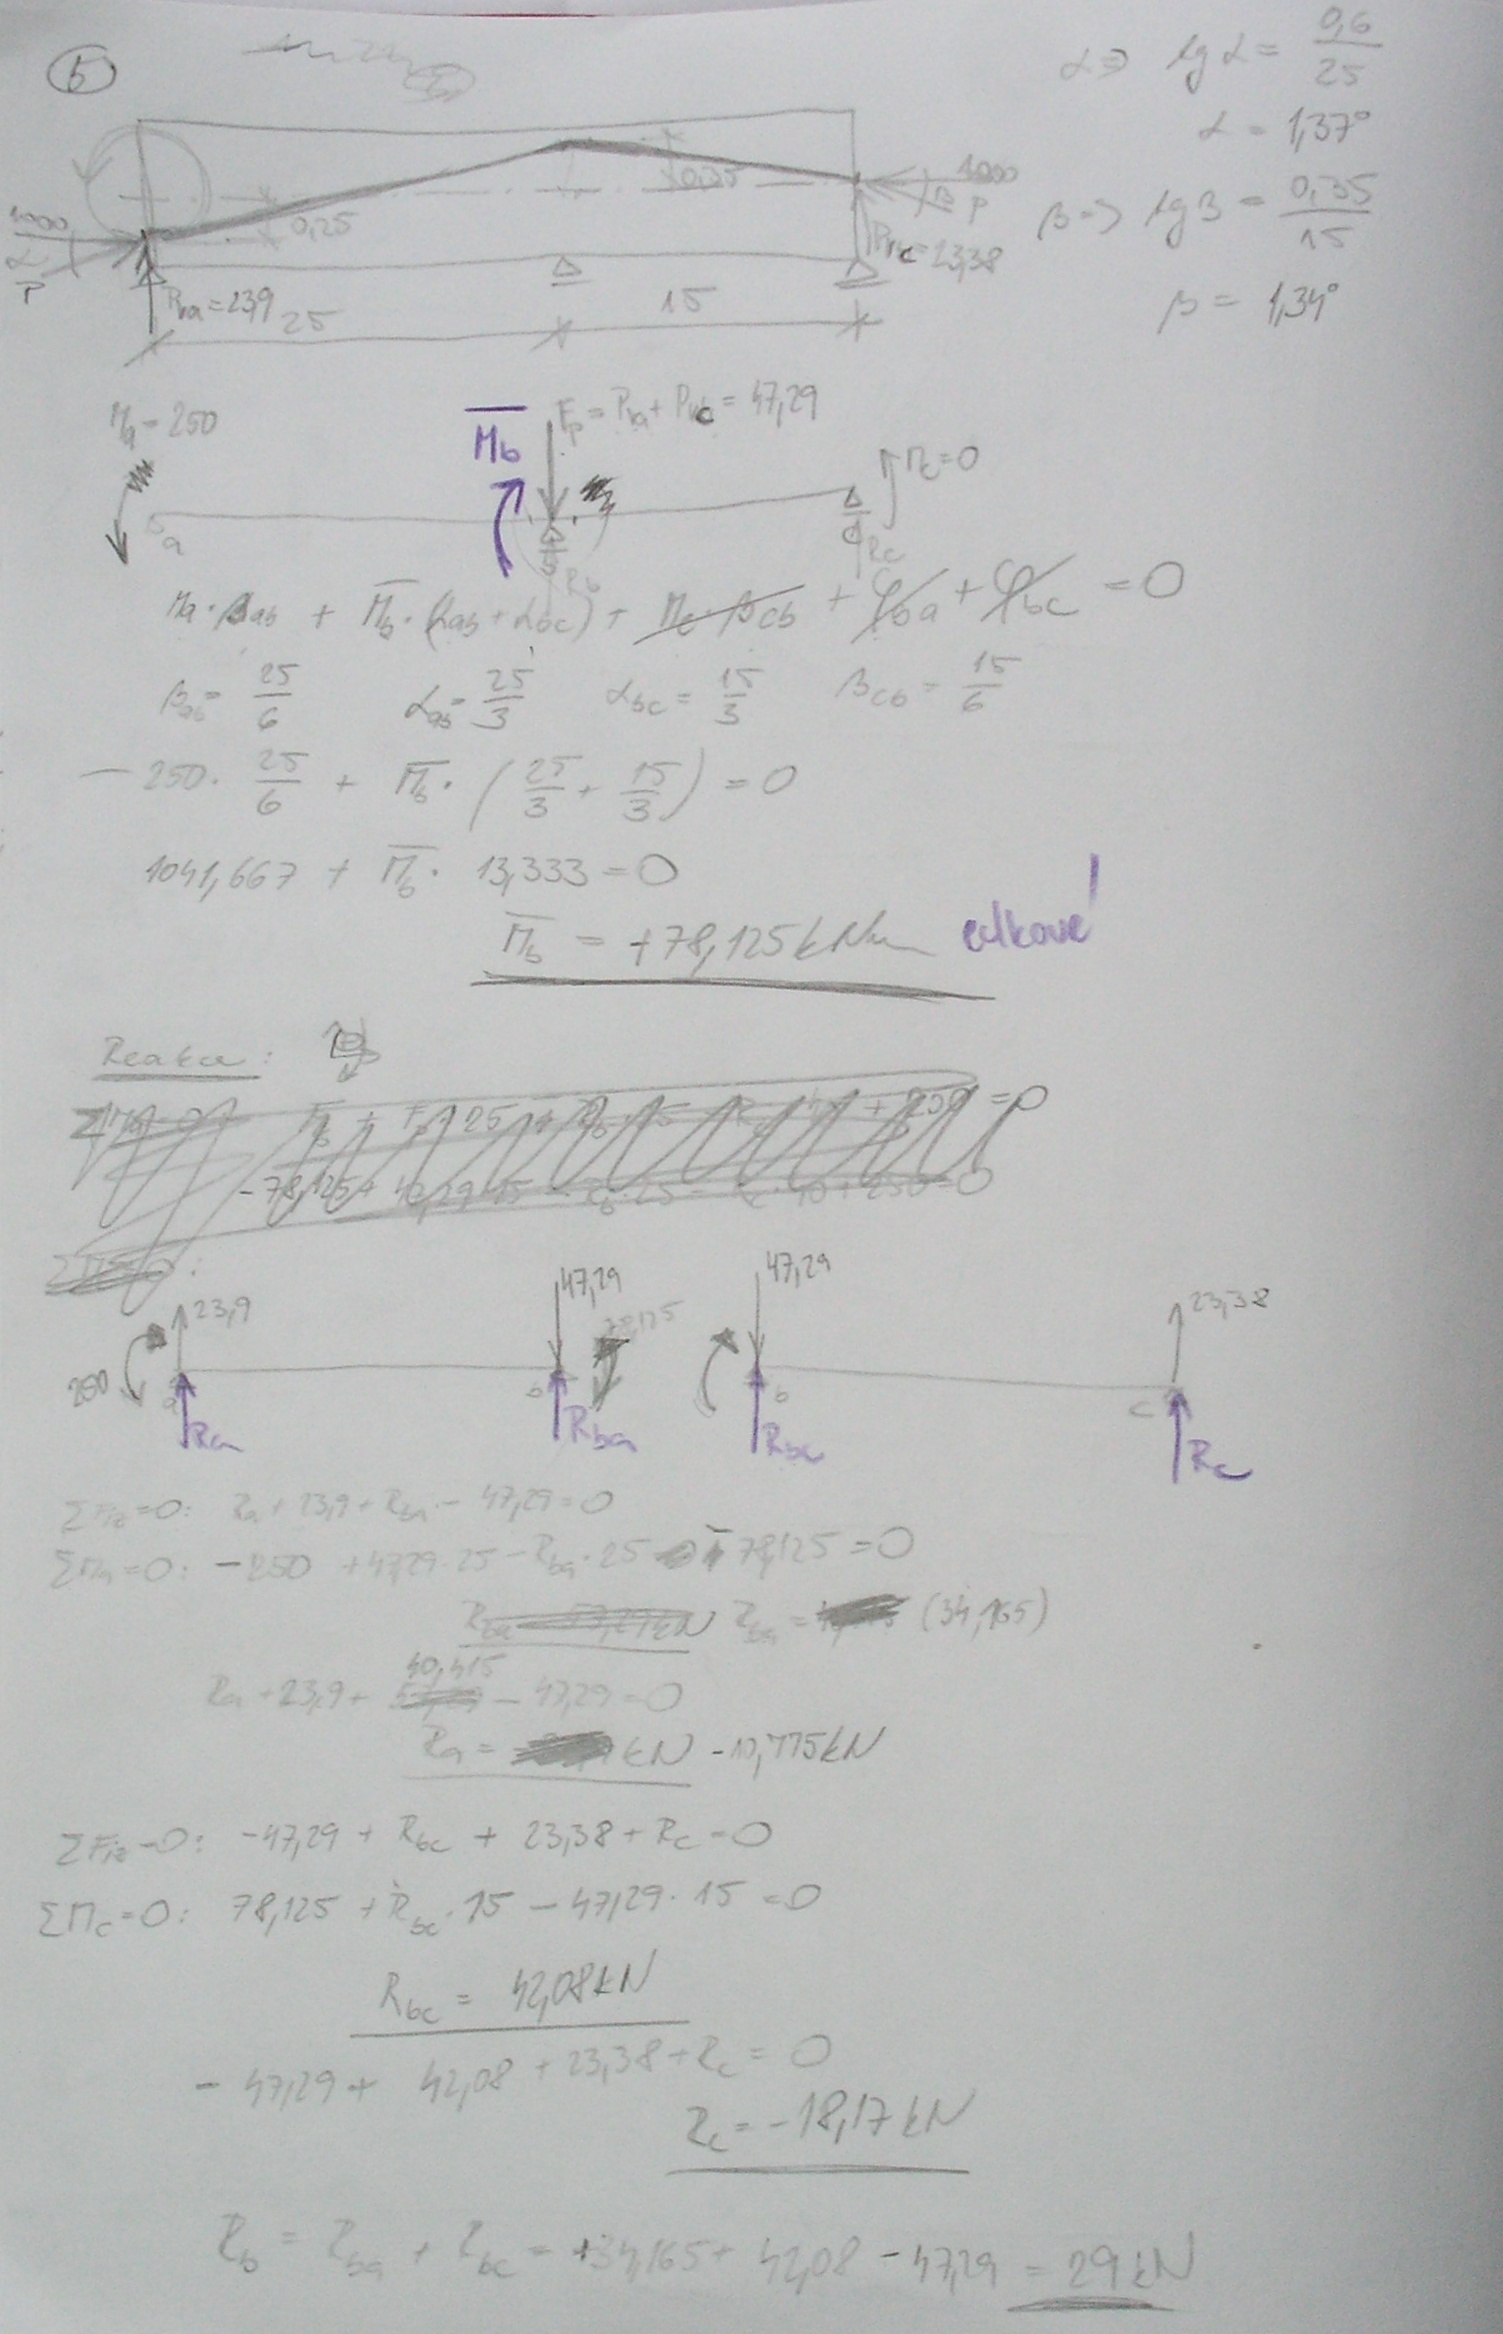 5
α ⇒ tg α = 0,6/25
α = 1,37°
β ⇒ tg β = 0,35/15
β = 1,34°
0,25
0,35
1000
α
P
1000
β
P
Pva = 23,9
Pvc = 23,38
25
15
Ma = 250
M̅b
Fp = Pva + Pvc = 47,29
Mc = 0
a
Rb
Rc
Ma · βab + M̅b · (αab + αbc) + Mc · βcb + φba + φbc = 0
βab = 25/6 αab = 25/3 αbc = 15/3 βcb = 15/6
- 250 · 25/6 + M̅b · (25/3 + 15/3) = 0
1041,667 + M̅b · 13,333 = 0
M̅b = +78,125 kNm celkové!
Reakce:
23,9
47,29
78,125
47,29
23,38
250
a
b
b
c
Ra
Rba
Rbc
Rc
ΣFiz=0: Ra + 23,9 + Rba - 47,29 = 0
ΣMa=0: -250 + 47,29 · 25 - Rba · 25 - 78,125 = 0
Rba = (34,165)
40,415
Ra + 23,9 + - 47,29 = 0
Ra = kN -10,775 kN
ΣFiz=0: -47,29 + Rbc + 23,38 + Rc = 0
ΣMc=0: 78,125 + Rbc · 15 - 47,29 · 15 = 0
Rbc = 42,08 kN
- 47,29 + 42,08 + 23,38 + Rc = 0
Rc = -18,17 kN
Rb = Rba + Rbc = +34,165 + 42,08 - 47,29 = 29 kN